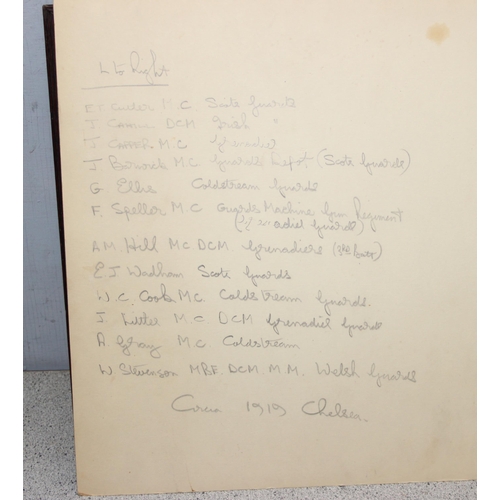 L to Right
M.C Scots Guards
J DCM Irish "
J M.C Grenadier
J Barwick M.C Guards Depot (Scots Guards)
G Ellis Coldstream Guards
F. Speller M.C Guards Machine Gun Regiment
(Grenadier Guards)
A M. Hill MC DCM. Grenadiers
E J Wadham Scots Guards
W. C. Cook M.C. Coldstream Guards.
J. Little M.C DCM Grenadier Guards
A Gray M.C Coldstream
W Stevenson MBE. DCM. M.M. Welsh Guards
Circa 1919 Chelsea.